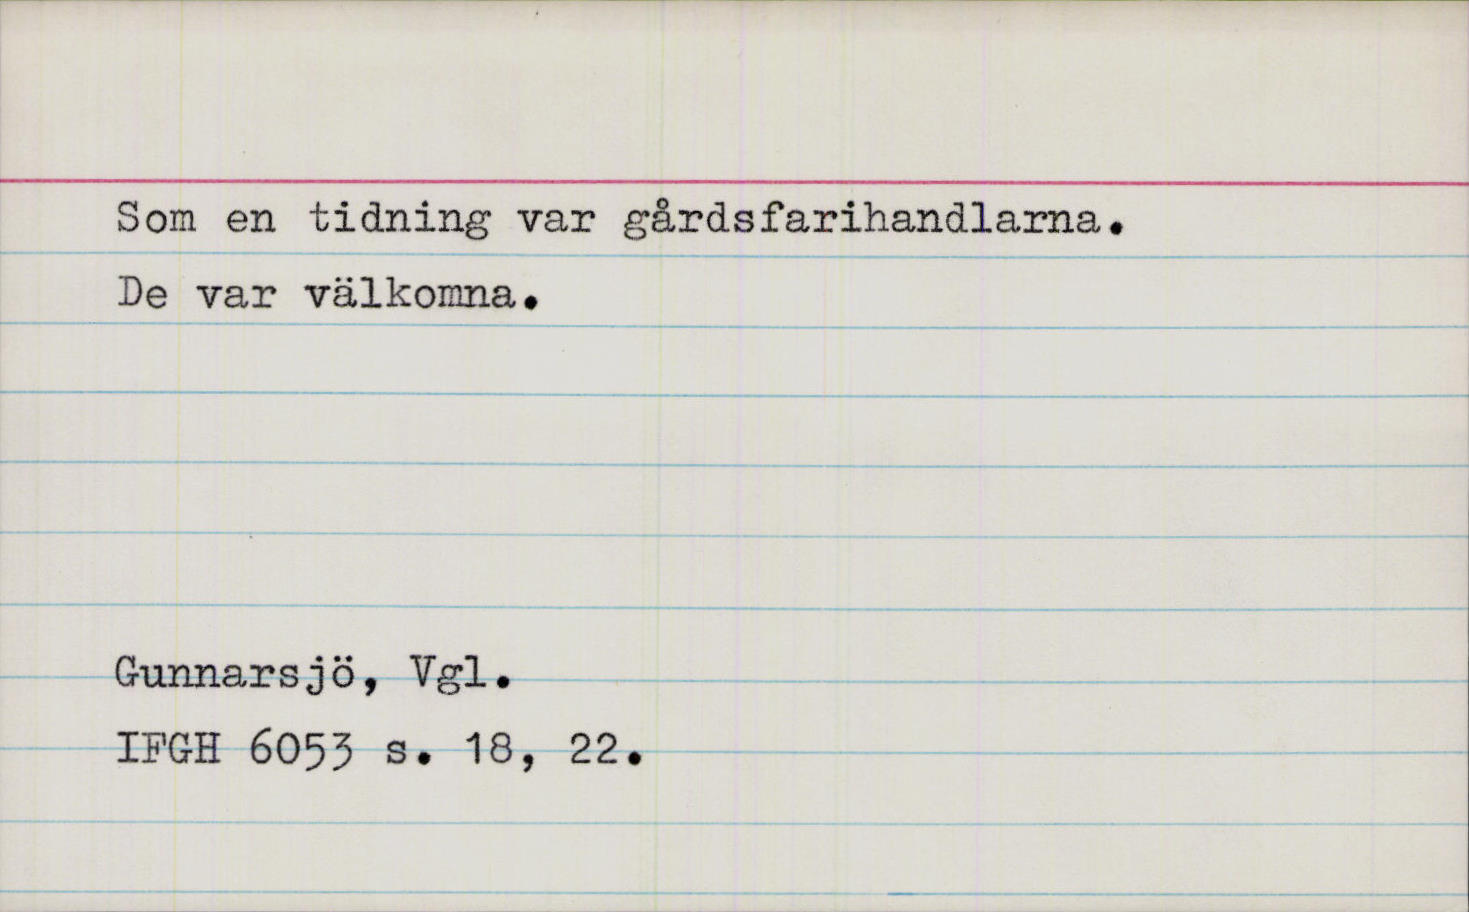 Som en tidning var gårdsfarihandlarna.
De var välkomna.
Gunnarsjö, Vgl.
IFGH 6053 s. 18, 22.